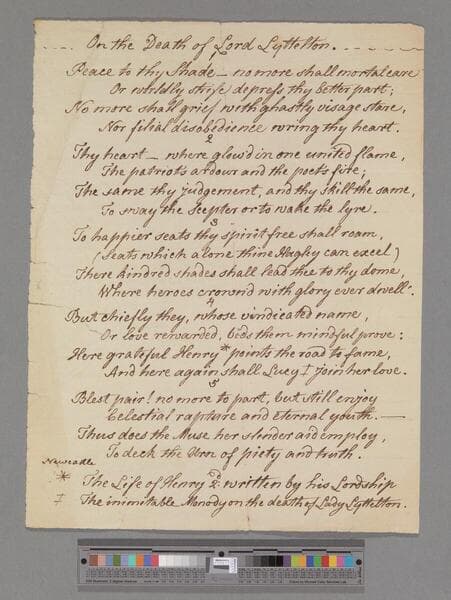 On the Death of Lord Lyttelton.
Peace to thy Shade — no more shall mortal care
Or worldly strife depress thy better part;
No more shall grief with ghastly visage stare,
Nor filial disobedience wring thy heart.
2
Thy heart — where glow'd in one united flame,
The patriot's ardour and the poet's fire;
The same thy judgement, and thy skill the same,
To sway the Scepter or to wake the lyre.
3
To happier seats thy spirit free shall roam
(Seats which alone thine Hagley can excel)
There kindred shades shall lead thee to thy dome,
Where heroes crown'd with glory ever dwell.
4
But chiefly they, whose vindicated name,
Or love rewarded, bids them mindful prove:
Here grateful Henry * points the road to fame,
And here again shall Lucy ‡ join her love.
5
Blest pair! no more to part, but still enjoy
Celestial rapture and eternal youth. —
Thus does the Muse her slender aid employ,
To deck the Urn of piety and truth.
Newcastle
* The Life of Henry 2d. written by his Lordship
‡ The inimitable Monody on the death of Lady Lyttelton.